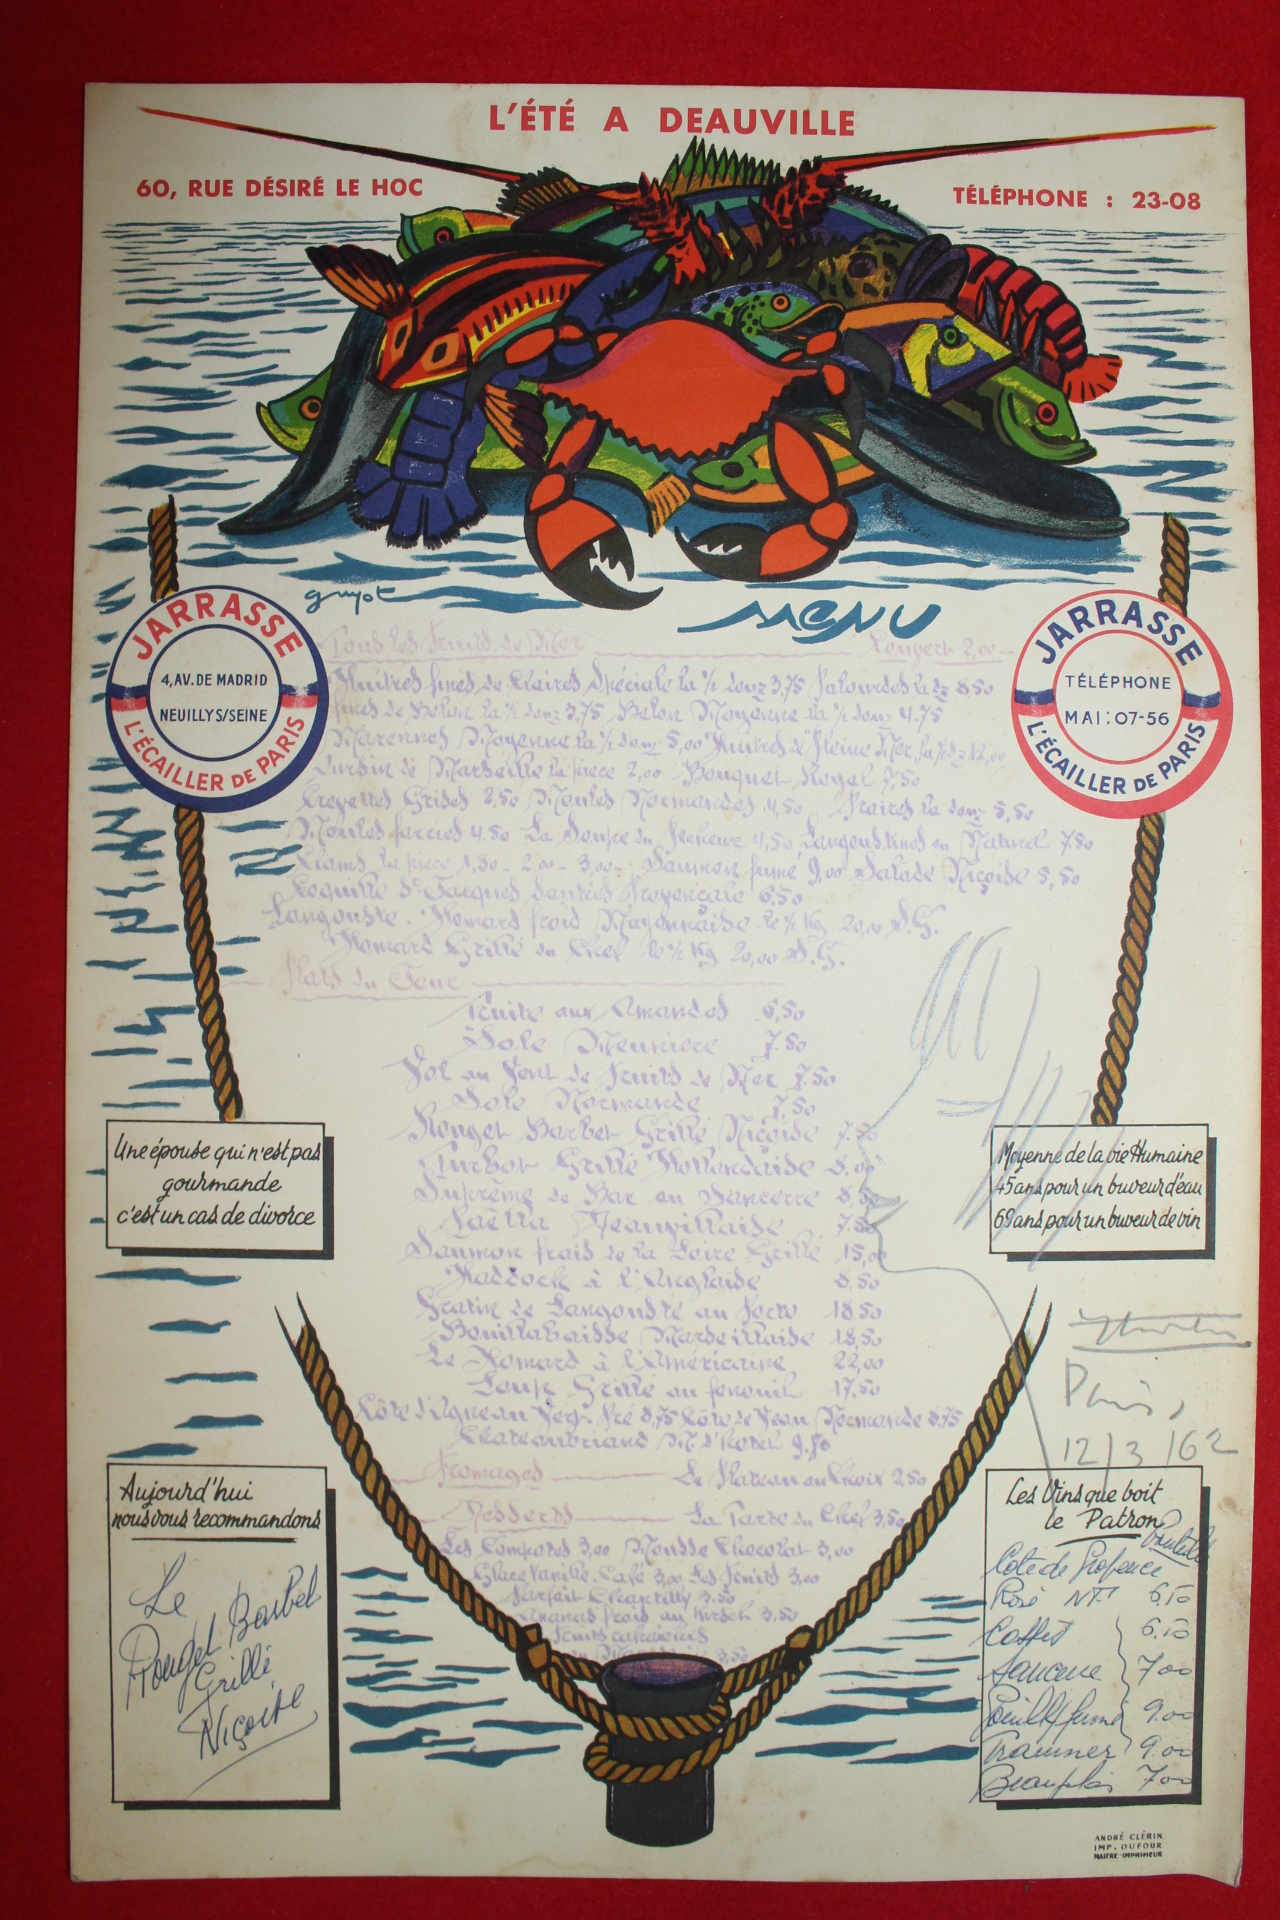 L'ÉTÉ A DEAUVILLE
60, RUE DÉSIRÉ LE HOC
TÉLÉPHONE : 23-08
guyot
MENU
JARRASSE
4, AV. DE MADRID
NEUILLY S/SEINE
L'ÉCAILLER DE PARIS
JARRASSE
TÉLÉPHONE
MAI : 07-56
L'ÉCAILLER DE PARIS
Tous les Fruits de Mer Couvert 2,00
Huîtres fines de Claires Spéciale la ½ douz 3,75 Palourdes la dz 8,50
fines de Belon la ½ douz 3,75 Belon Moyenne la ½ douz 4.75
Marennes Moyenne la ½ douz 5,00 Huîtres de Pleine Mer la ½ dz 12,00
Oursin de Marseille la pièce 2,00 Bouquet Royal 7,50
Crevettes Grises 2,50 Moules Normandes 4,50 Praires la douz 5,50
Moules farcies 4.50 La Soupe du Pêcheur 4,50 Langoustines au Naturel 7.50
Clams la pièce 1,80 - 2,00 - 3,00 - Saumon fumé 9,00 Salade Niçoise 5,50
Coquille St Jacques Provençale 6.50
Langouste. Homard froid Mayonnaise le ½ Kg 20,00 S.G.
Homard Grillé du Chef le ½ Kg 20,00 S.G.
Plats du Jour
Truite aux Amandes 6,50
Sole Meunière 7.50
Vol au Vent de Fruits de Mer 7.50
Sole Normande 7,50
Rouget Barbet Grillé Niçoise 7.50
Turbot Grillé Hollandaise 8.00
Suprême de Bar au Sancerre 8,50
Paëlla Deauvillaise 7.50
Saumon frais de la Loire Grillé 15,00
Haddock à l'Anglaise 8.50
Gratin de Langouste au Porto 18.50
Bouillabaisse Marseillaise 18,50
Le Homard à l'Américaine 22,00
Loup Grillé au fenouil 17,50
Côte d'Agneau Vert-Pré 8,75 Côte de Veau Normande 8,75
Chateaubriand M. d'hotel 9.80
Fromages Le Plateau au Choix 2,50
Desserts La Tarte du Chef 3,50
Les Compotes 3,00 Mousse Chocolat 3,00
Glace Vanille - Café 3,00 Les Fruits 3,00
Parfait Chantilly 3.50
Ananas frais au Kirsch 3.50
Fruits rafraîchis
3,50
Une épouse qui n'est pas
gourmande
c'est un cas de divorce
Moyenne de la vie Humaine
45 ans pour un buveur d'eau
69 ans pour un buveur de vin
Paris,
12/3/62
Aujourd'hui
nous vous recommandons
Le
Rouget Barbet
Grillé
Niçoise
Les Vins que boit
le Patron
Bouteille
Cote de Provence
Rosé NF. 6.50
Cassis 6.50
Sancerre 7.00
Pouilly fumé 9.00
Traminer 9.00
Beaujolais 7.00
ANDRÉ CLÉRIN
IMP. DUFOUR
MAITRE-IMPRIMEUR